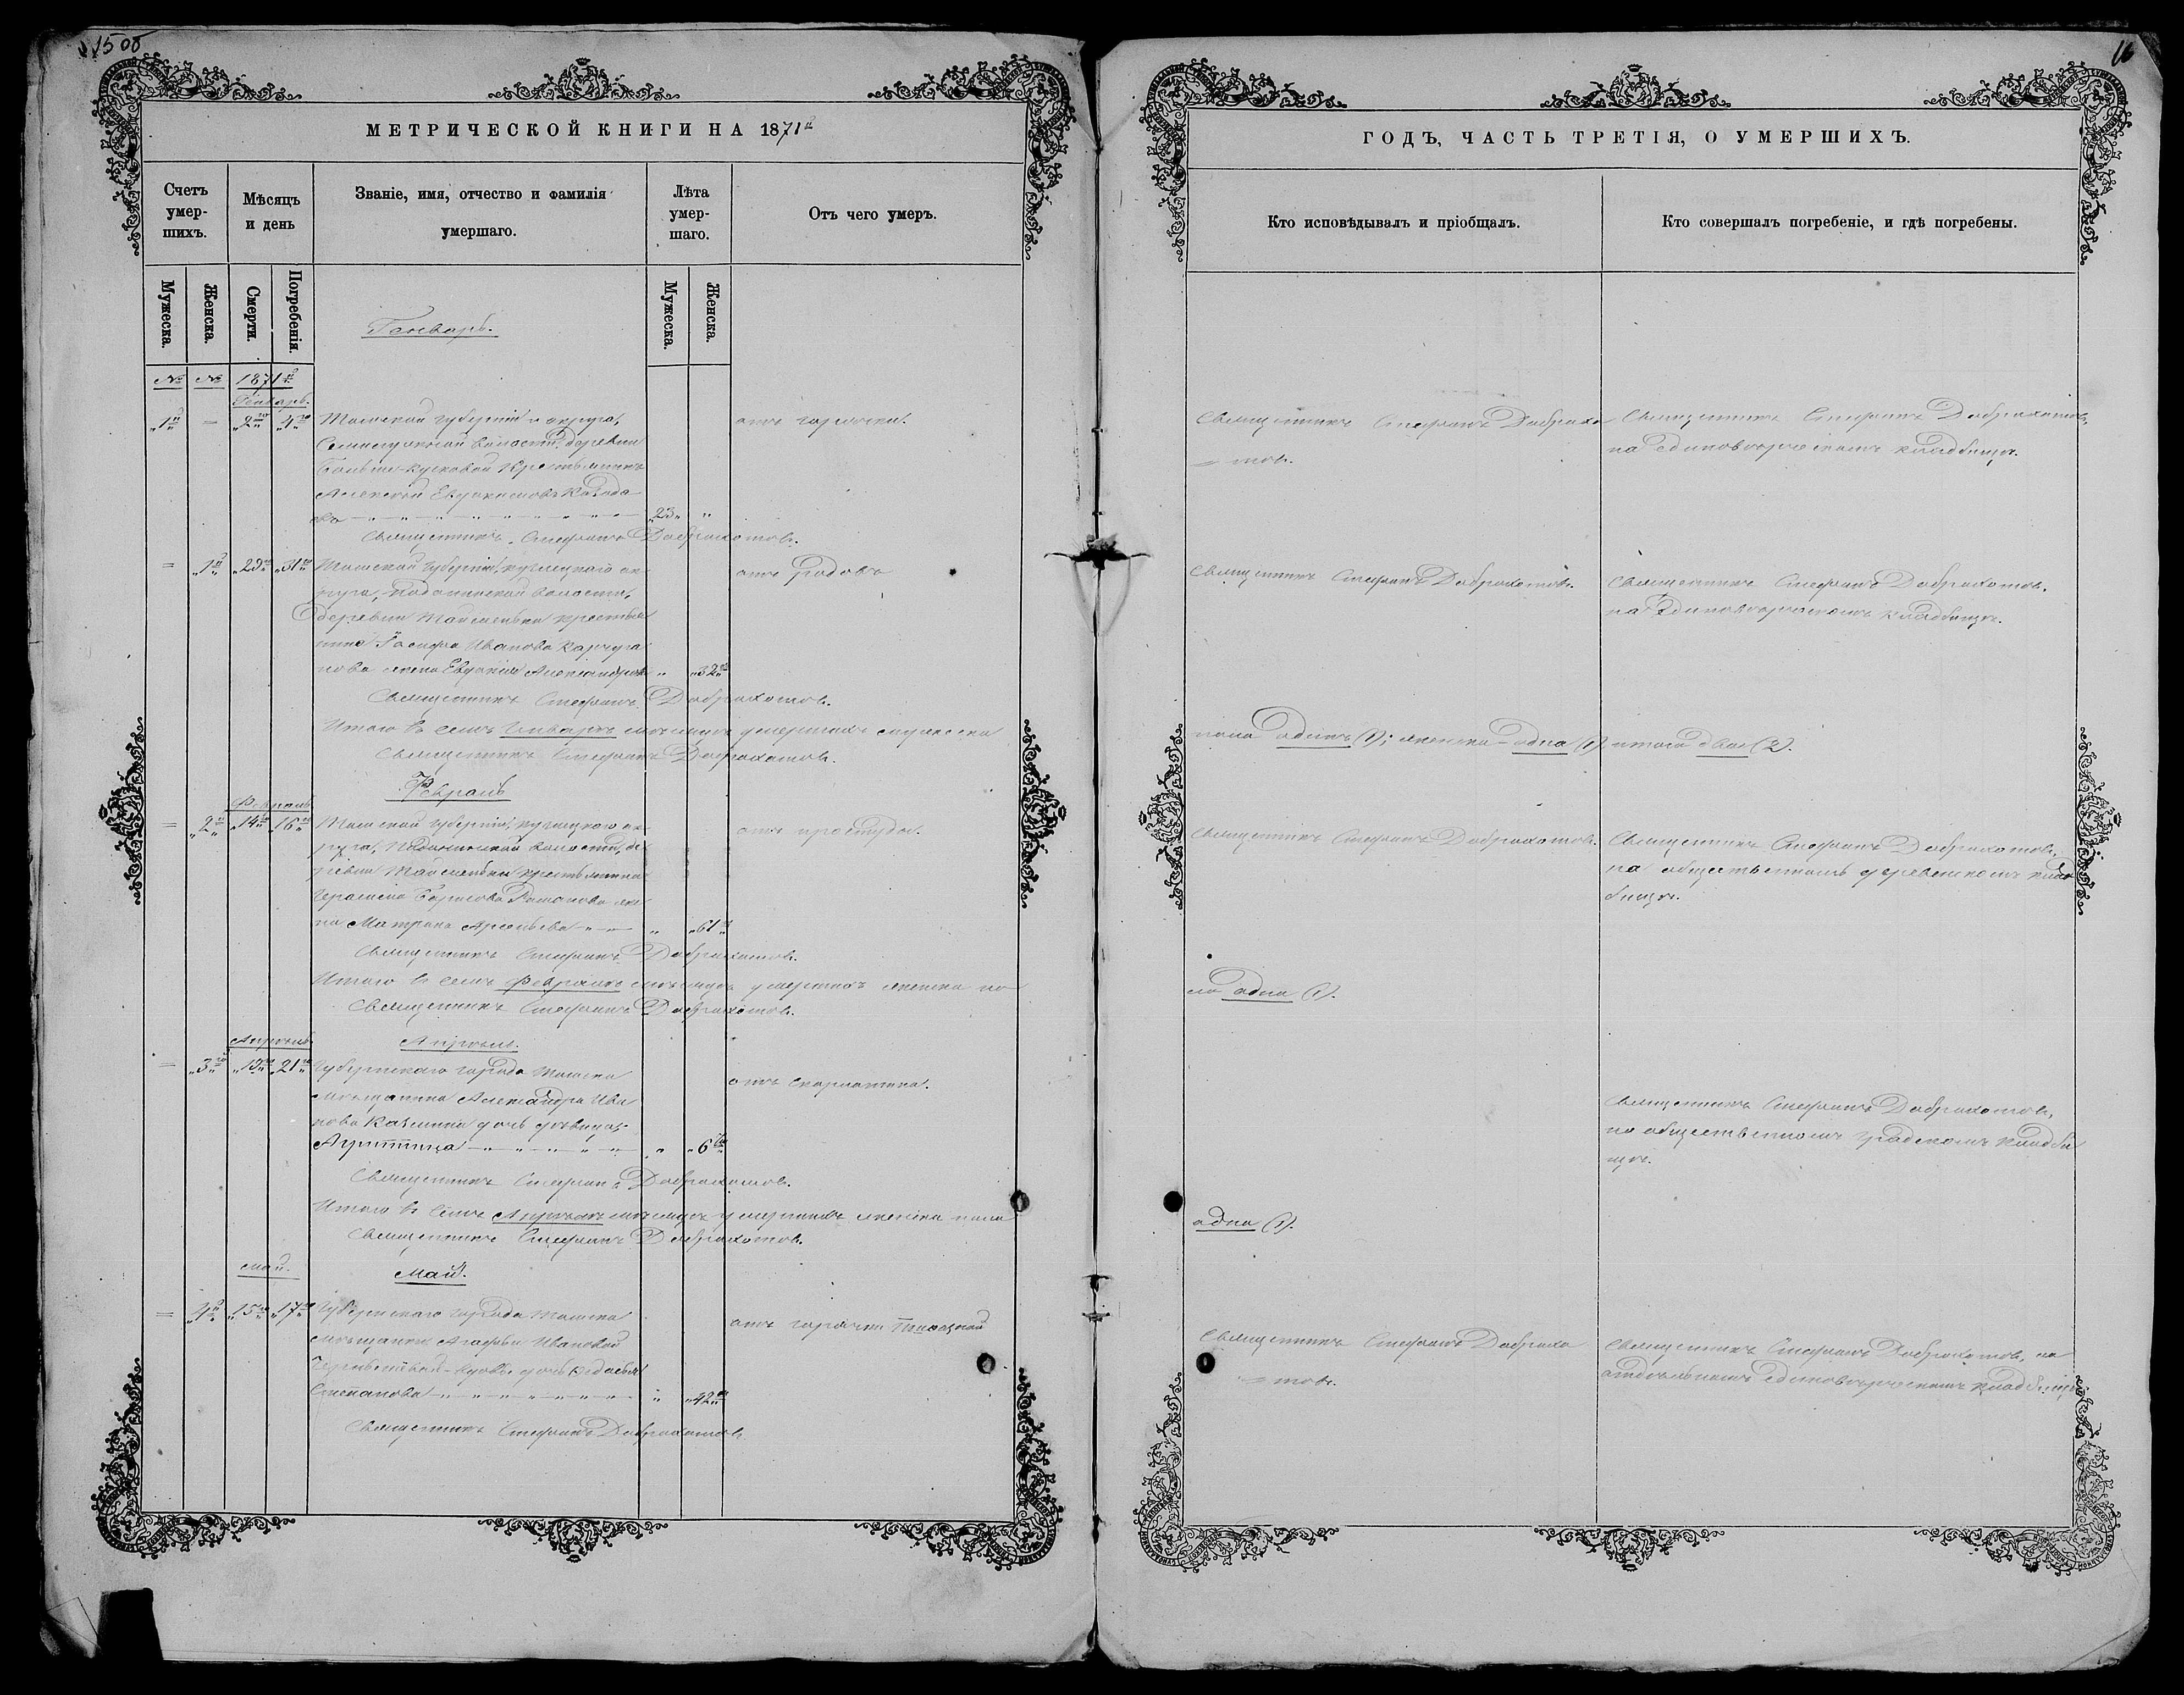 1508
16
МЕТРИЧЕСКОЙ КНИГИ НА 1871 г.
ГОДЪ, ЧАСТЬ ТРЕТІЯ, О УМЕРШИХЪ.
Счетъ умер-шихъ.
Мѣсяцъ и день
Званіе, имя, отчество и фамилія умершаго.
Лѣта умер-шаго.
Отъ чего умеръ.
Кто исповѣдывалъ и пріобщалъ.
Кто совершалъ погребеніе, и гдѣ погребены.
Мужеска.
Женска.
Смерти.
Погребенія.
Мужеска.
Женска.
Генварь.
№ № 1871 г.
Генварь.
1й — 2го 4го
Томской губерніи и округа,
волости, деревни
крестьянинъ
Алексѣй Евдокимовъ
23
отъ горячки.
Священникъ Стефанъ Доброхо
= товъ.
Священникъ Стефанъ Доброхотовъ,
на единовѣрческомъ кладбищѣ.
Священникъ Стефанъ Доброхотовъ.
= 1я 29го 31го
Томской губерніи, кузнецкаго ок-
руга, волости,
деревни крестья
нина Іосифа Иванова
нова жена Евдокія Александрова
32
отъ родовъ
Священникъ Стефанъ Доброхотовъ.
Священникъ Стефанъ Доброхотовъ.
на единовѣрческомъ кладбищѣ.
Священникъ Стефанъ Доброхотовъ.
Итого въ семъ Генварѣ мѣсяцѣ умершихъ мужеска
пола одинъ (1); женска одна (1). итого двое (2).
Священникъ Стефанъ Доброхотовъ.
Февраль
Февраль
= 2я 14го 16го
Томской губерніи, кузнецкаго ок-
руга, волости, де
ревни крестьянина
Герасима Борисова Романова же
на Матрона Арсеньева
61
отъ простуды.
Священникъ Стефанъ Доброхотовъ.
Священникъ Стефанъ Доброхотовъ,
на общественномъ деревенскомъ клад
бищѣ.
Священникъ Стефанъ Доброхотовъ.
Итого въ семъ Февралѣ мѣсяцѣ умершихъ женска по
ла одна (1).
Священникъ Стефанъ Доброхотовъ.
Апрѣль.
Апрѣль.
= 3я 19го 21го
Губернскаго города Томска
мѣщанина Александра Ива
нова дочь дѣвица
6
отъ скарлатина.
Священникъ Стефанъ Доброхотовъ,
на общественномъ градскомъ кладби
щѣ.
Священникъ Стефанъ Доброхотовъ.
Итого въ семъ Апрѣлѣ мѣсяцѣ умершихъ женска пола
одна (1).
Священникъ Стефанъ Доброхотовъ.
май.
Май.
= 4я 15го 17го
Губернскаго города Томска
мѣщанки Агафьи Ивановой
дочь
Степанова
42
отъ горячки
Священникъ Стефанъ Доброхо
= товъ.
Священникъ Стефанъ Доброхотовъ, на
отдѣльномъ единовѣрческомъ кладбищѣ
Священникъ Стефанъ Доброхотовъ.